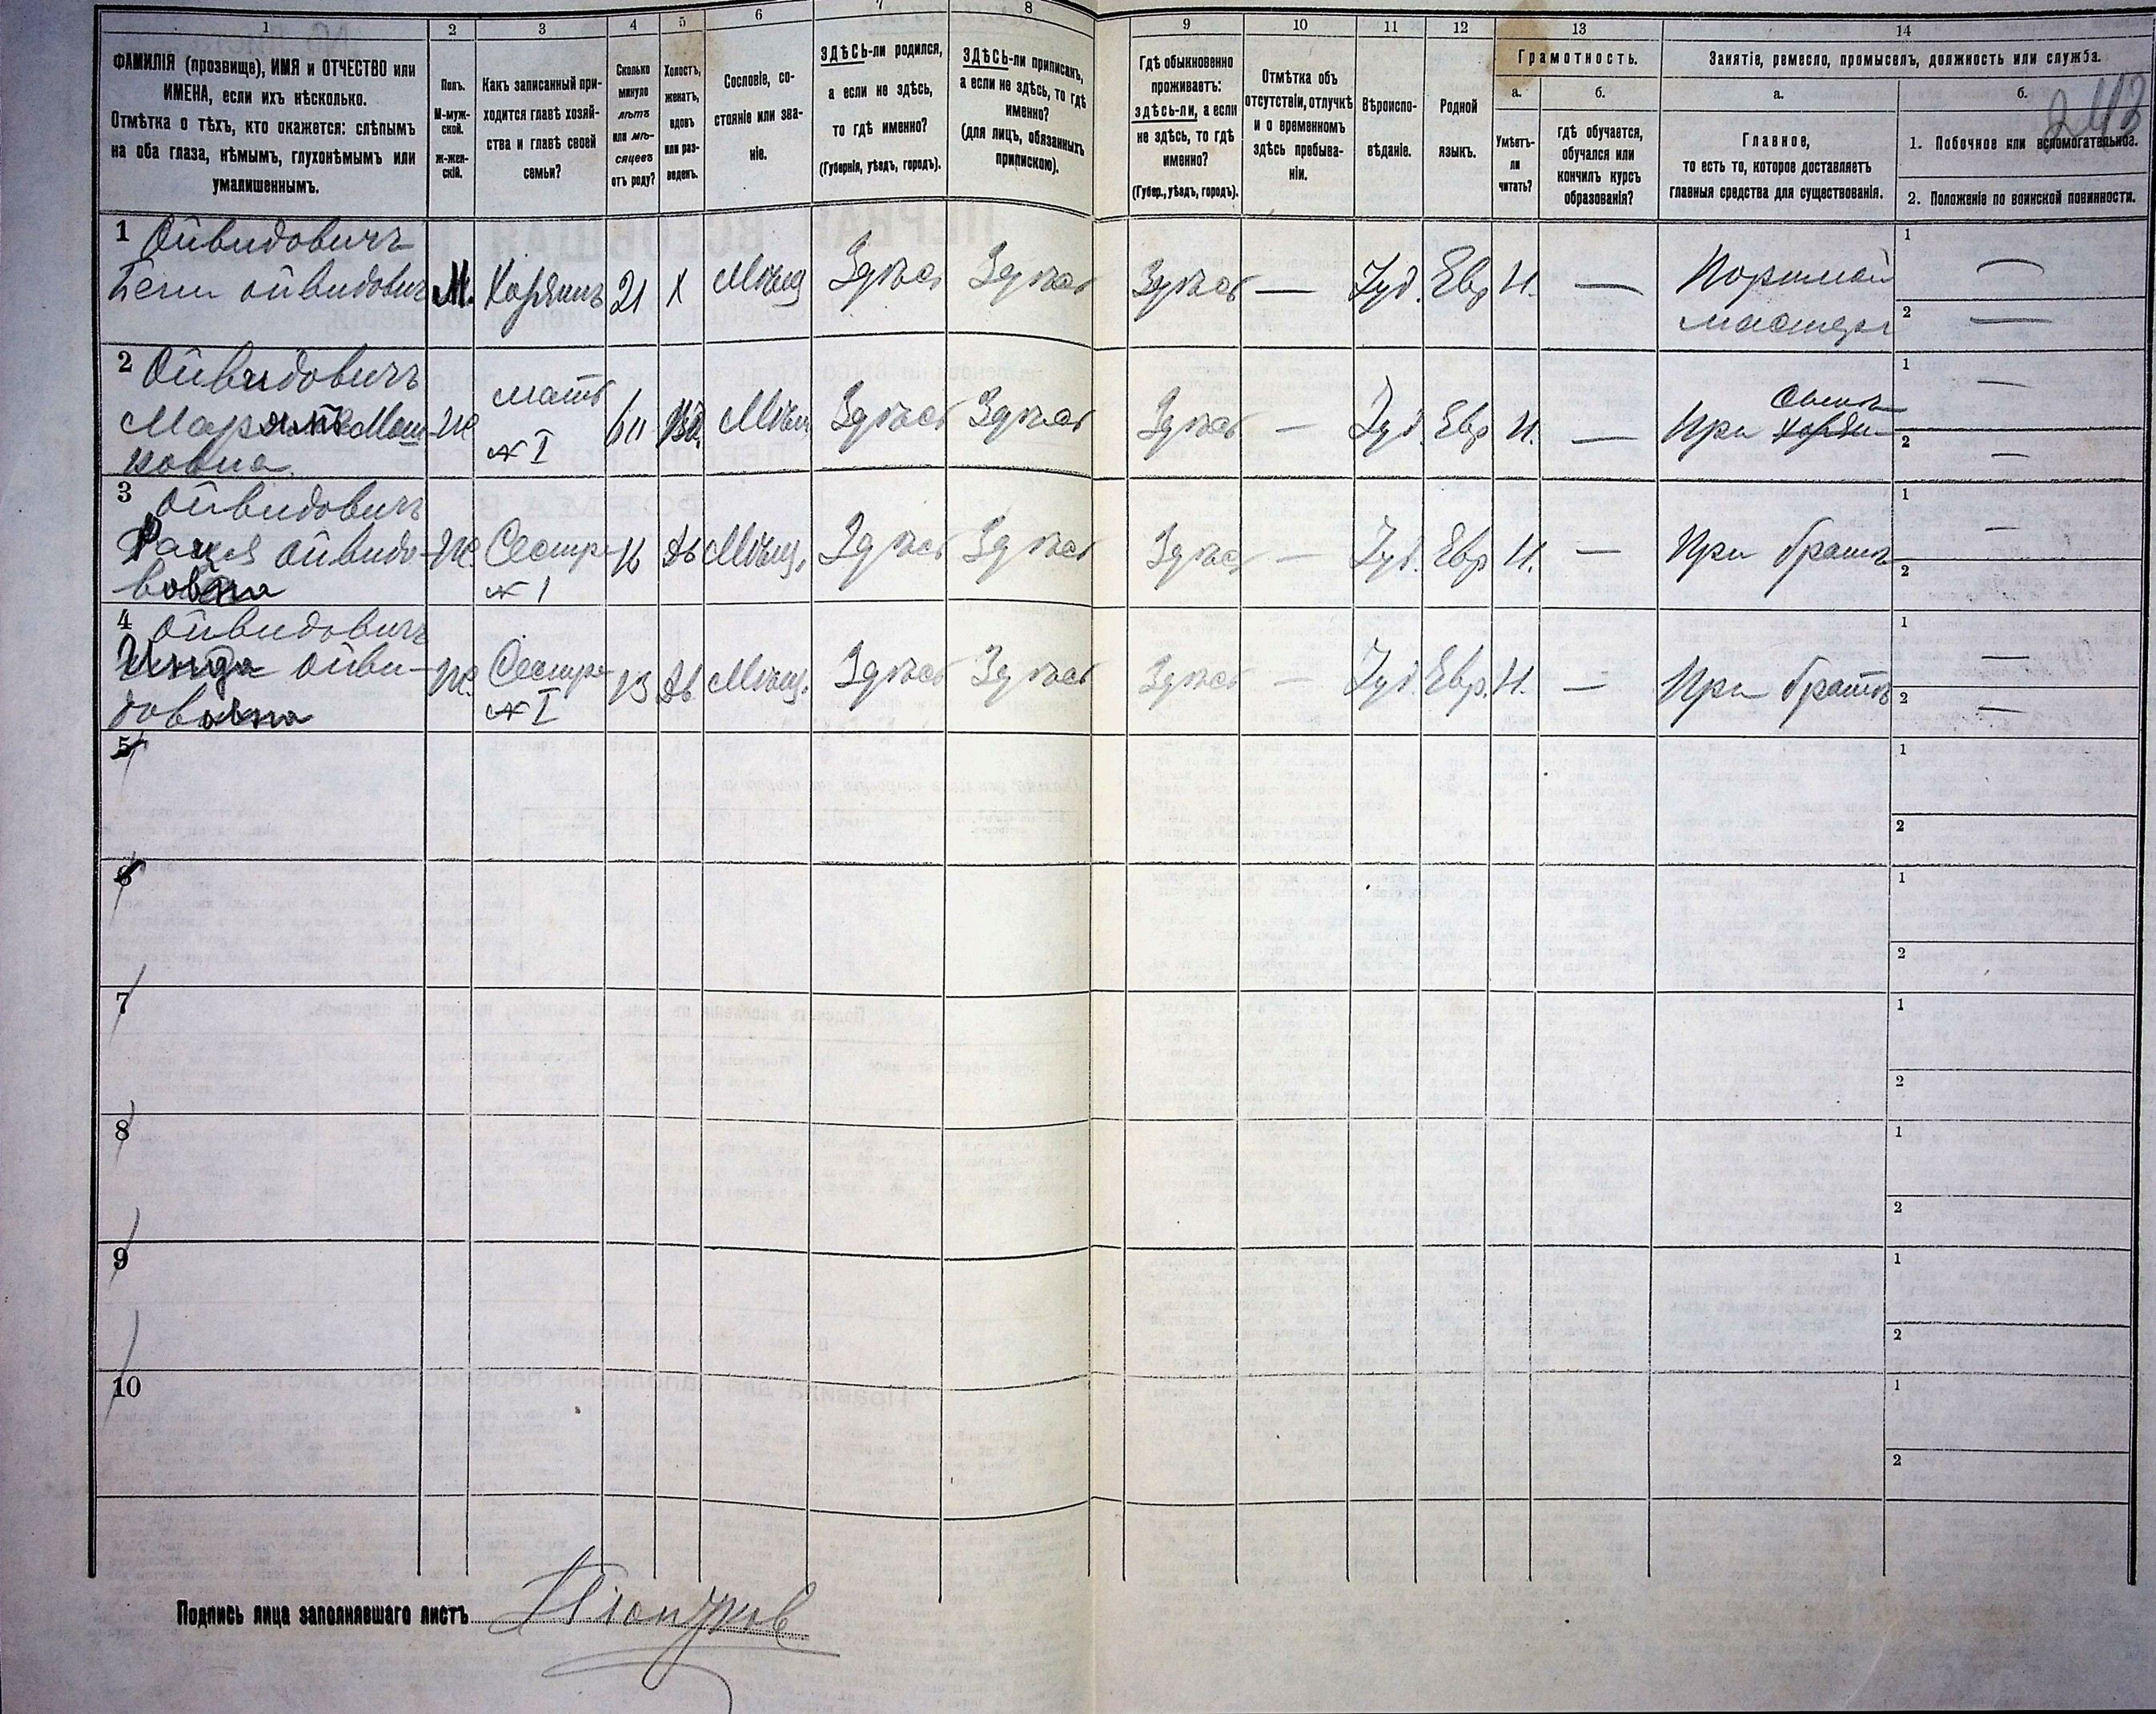 1 2 3 4 5 6 7 8 9 10 11 12 13 14
ФАМИЛІЯ (прозвище), ИМЯ и ОТЧЕСТВО или
ИМЕНА, если ихъ нѣсколько.
Отмѣтка о тѣхъ, кто окажется: слѣпымъ
на оба глаза, нѣмымъ, глухонѣмымъ или
умалишеннымъ.
Полъ.
М-муж-
ской.
ж-жен-
скій.
Какъ записанный при-
ходится главѣ хозяй-
ства и главѣ своей
семьи?
Сколько
минуло
лѣтъ
или мѣ-
сяцевъ
отъ роду?
Холостъ,
женатъ,
вдовъ
или раз-
веденъ.
Сословіе, со-
стояніе или зва-
ніе.
ЗДѢСЬ-ли родился,
а если не здѣсь,
то гдѣ именно?
(Губернія, уѣздъ, городъ).
ЗДѢСЬ-ли приписанъ,
а если не здѣсь, то гдѣ
именно?
(для лицъ, обязанныхъ
припискою).
Гдѣ обыкновенно
проживаетъ:
здѣсь-ли, а если
не здѣсь, то гдѣ
именно?
(Губер., уѣздъ, городъ).
Отмѣтка объ
отсутствіи, отлучкѣ
и о временномъ
здѣсь пребыва-
ніи.
Вѣроиспо-
вѣданіе.
Родной
языкъ.
Грамотность.
а.
Умѣетъ-
ли
читать?
б.
гдѣ обучается,
обучался или
кончилъ курсъ
образованія?
Занятіе, ремесло, промыселъ, должность или служба.
а.
Главное,
то есть то, которое доставляетъ
главныя средства для существованія.
б.
243
1. Побочное или вспомогательное.
2. Положеніе по воинской повинности.
1 Ойвидовичъ
Бени Ойвидовичъ М. Хозяинъ 21 Х Мѣщ Здѣсь Здѣсь Здѣсь — Іуд. Евр Н. — Портной
мастеръ
1 —
2 —
2 Ойвидовичъ
Ж мать
№ I 60 Вд. Мѣщ Здѣсь Здѣсь Здѣсь — Іуд. Евр Н. — При сынѣ
1 —
2 —
3 Ойвидовичъ
Ойвидо-
вовна Ж Сестра
№ 1 16 Дѣ Мѣщ. Здѣсь Здѣсь Здѣсь — Іуд. Евр Н. — При братѣ
1 —
2
4 Ойвидовичъ
Ойви-
довавна Ж. Сестра
№ I 13 Дѣ Мѣщ. Здѣсь Здѣсь Здѣсь — Іуд. Евр. Н. — При братѣ
1 —
2 —
5
1
2
6
1
2
7
1
2
8
1
2
9
1
2
10
1
2
Подпись лица заполнявшаго листъ